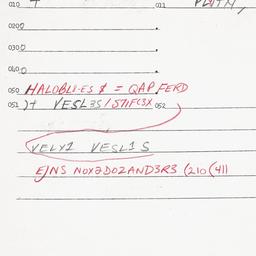 010 011 PLUTN,
0200
0300
0400
050 HALOBLI-ES $ = QAP FERD
051 )+ VESL3S/57IFC3X 052
VELY1 VESL1S
EJNS NOX2DO2AND3R3 (210(411